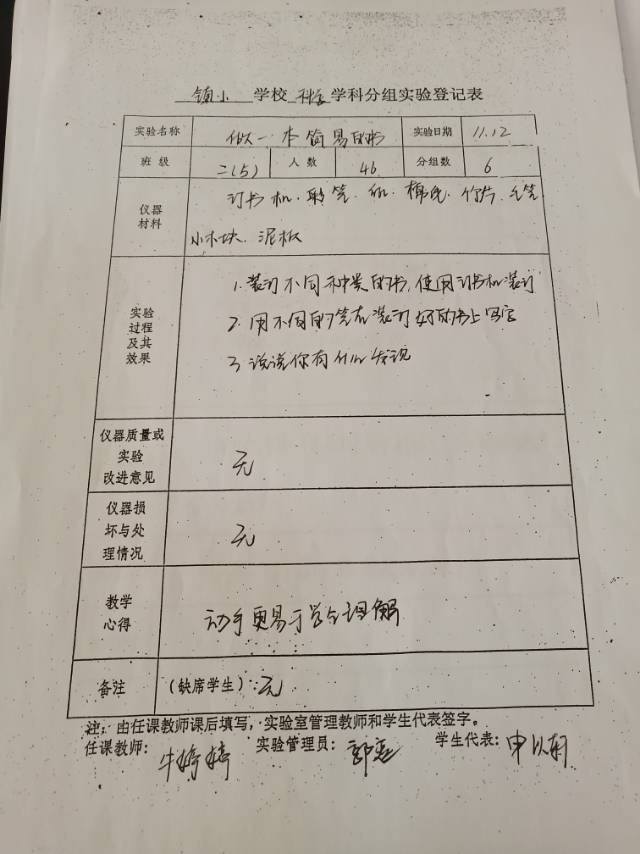 镇小 学校 科学 学科分组实验登记表
实验名称 做一本简易的书 实验日期 11.12
班 级 二(5) 人 数 46 分组数 6
仪器材料 订书机、 笔、 纸、棉绳、竹片、毛笔
小木块、泥板
实验过程及其效果
1. 装订不同种类的书,使用订书机装订
2. 用不同的笔在装订好的书上写字
3 说说你有什么发现
仪器质量或实验改进意见 无
仪器损坏与处理情况 无
教学心得 动手更易于学生理解
备注 (缺席学生):无
注:由任课教师课后填写,实验室管理教师和学生代表签字。
任课教师:牛婷婷 实验管理员:郭 学生代表:申